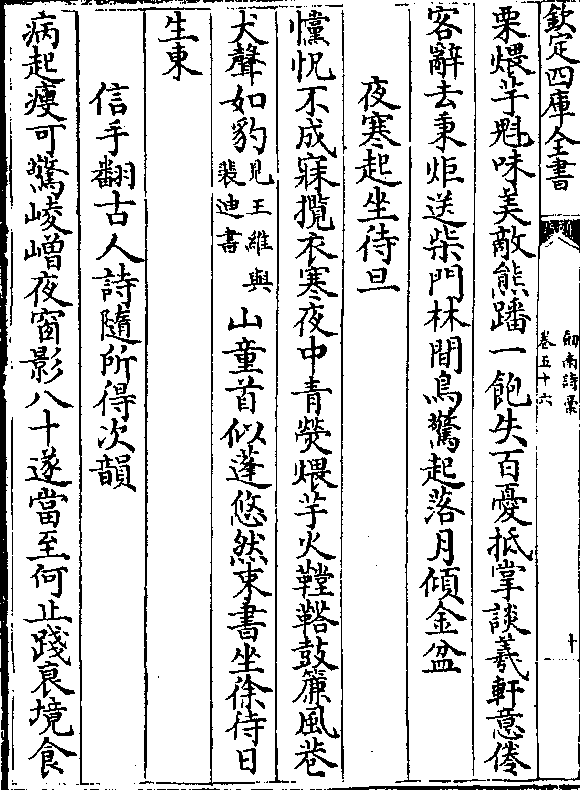 欽定四庫全書
劒南詩稾
卷五十六
十
栗煨芋魁味美敵熊蹯一飽失百憂抵掌談羲軒意倦
客辭去秉炬送柴門林間鳥驚起落月傾金盆
夜寒起坐待旦
戃怳不成寐攬衣寒夜中青熒煨芋火鞺鞳鼓簾風巷
犬聲如豹見王維與裴迪書山童首似蓬悠然束書坐徐待日
生東
信手翻古人詩隨所得次韻
病起瘦可驚崚嶒夜窗影八十遂當至何止踐衰境食